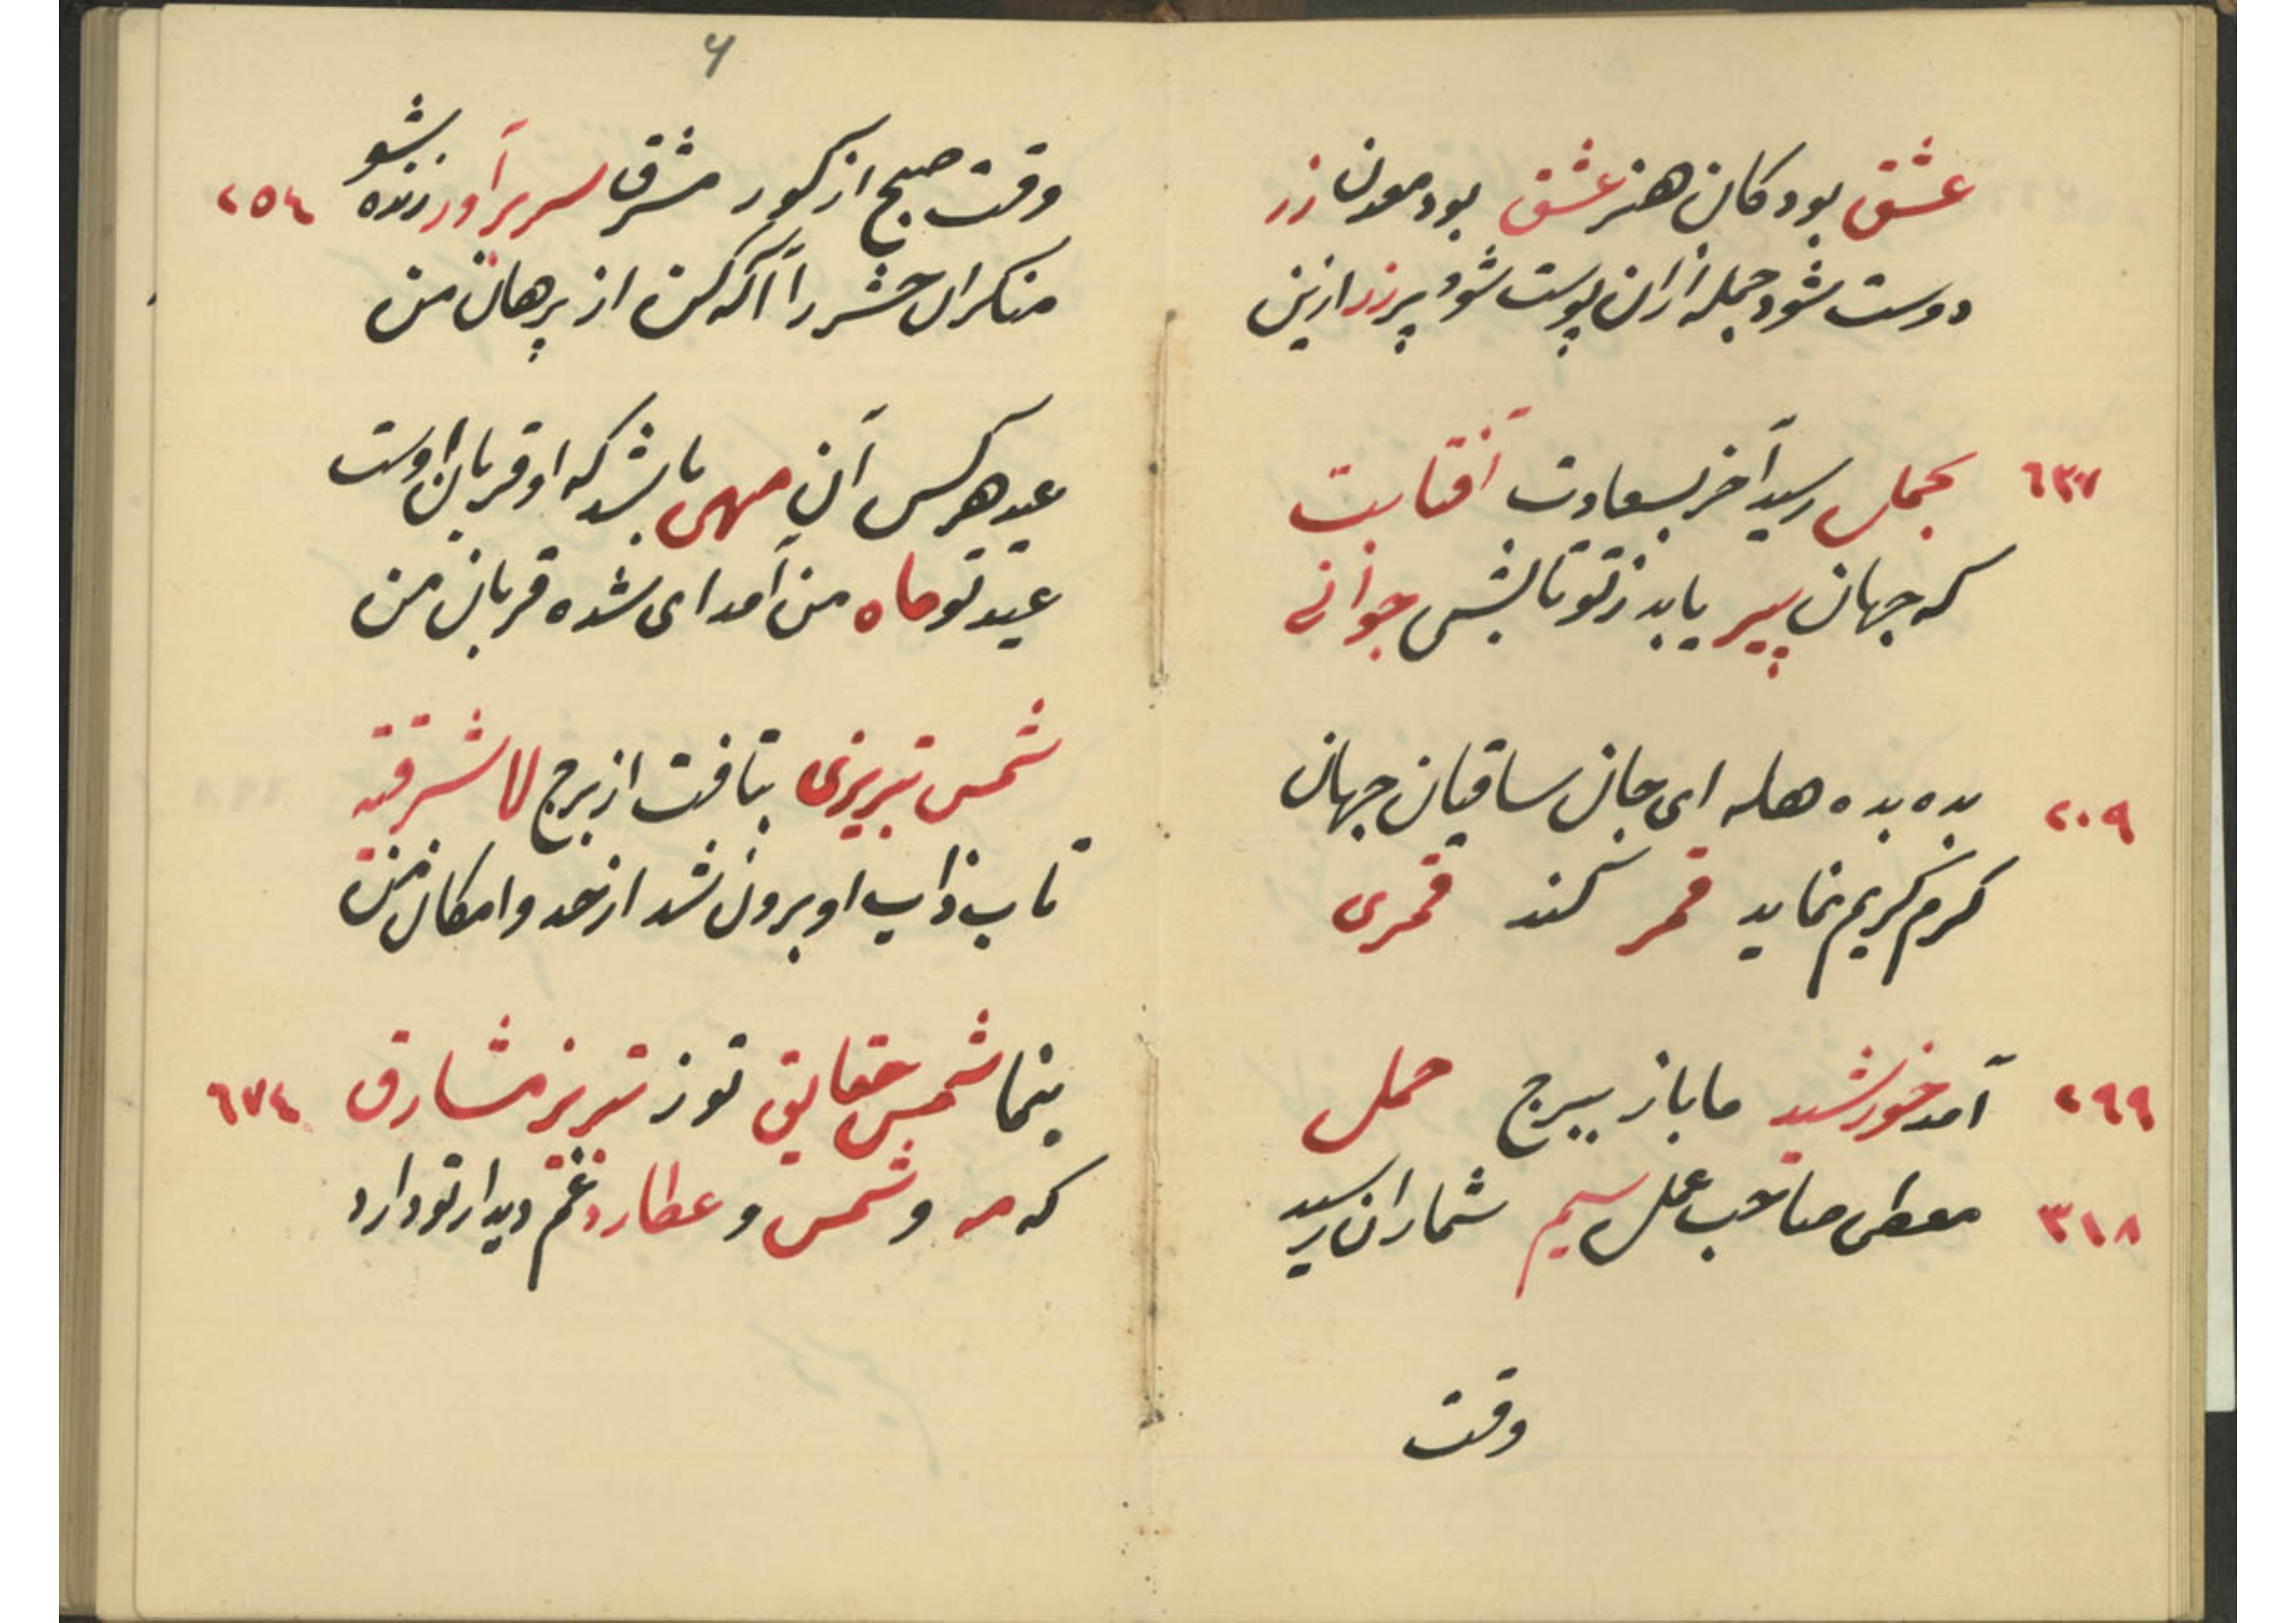 عشق بود کان هنر عشق بود معدن زر
دوست شود جمله ازان پوست شود پرزر ازین
٦٣٧ بحمل رسید آخر بسعادت آفتابت
که جهان پیر یابد ز تو تابش جوانی
٢٠٩ بده بده هله ای جان ساقیان جهان
کرم کریم نماید قمر کند قمری
٢٩٩ آمد خورشید ما باز ببرج حمل
٣١٨ معطی صاحب عمل سیم شماران رسید
وقت
۶
وقت صبح از کور مشرق سر برآور زنده شو ٢٥٤
منکران حشر را آکه کن از برهان من
عید هرکس آن مهی باشد که او قربان اوست
عید تو ماه من آمد ای شده قربان من
شمس تبریزی بتافت از برج لا شرقیه
تاب ذات او برون شد از حد و امکان من
بنما شمس حقایق تو ز تبریز مشارق ٦٧٤
که مه و شمس و عطارد غم دیدار تو دارد